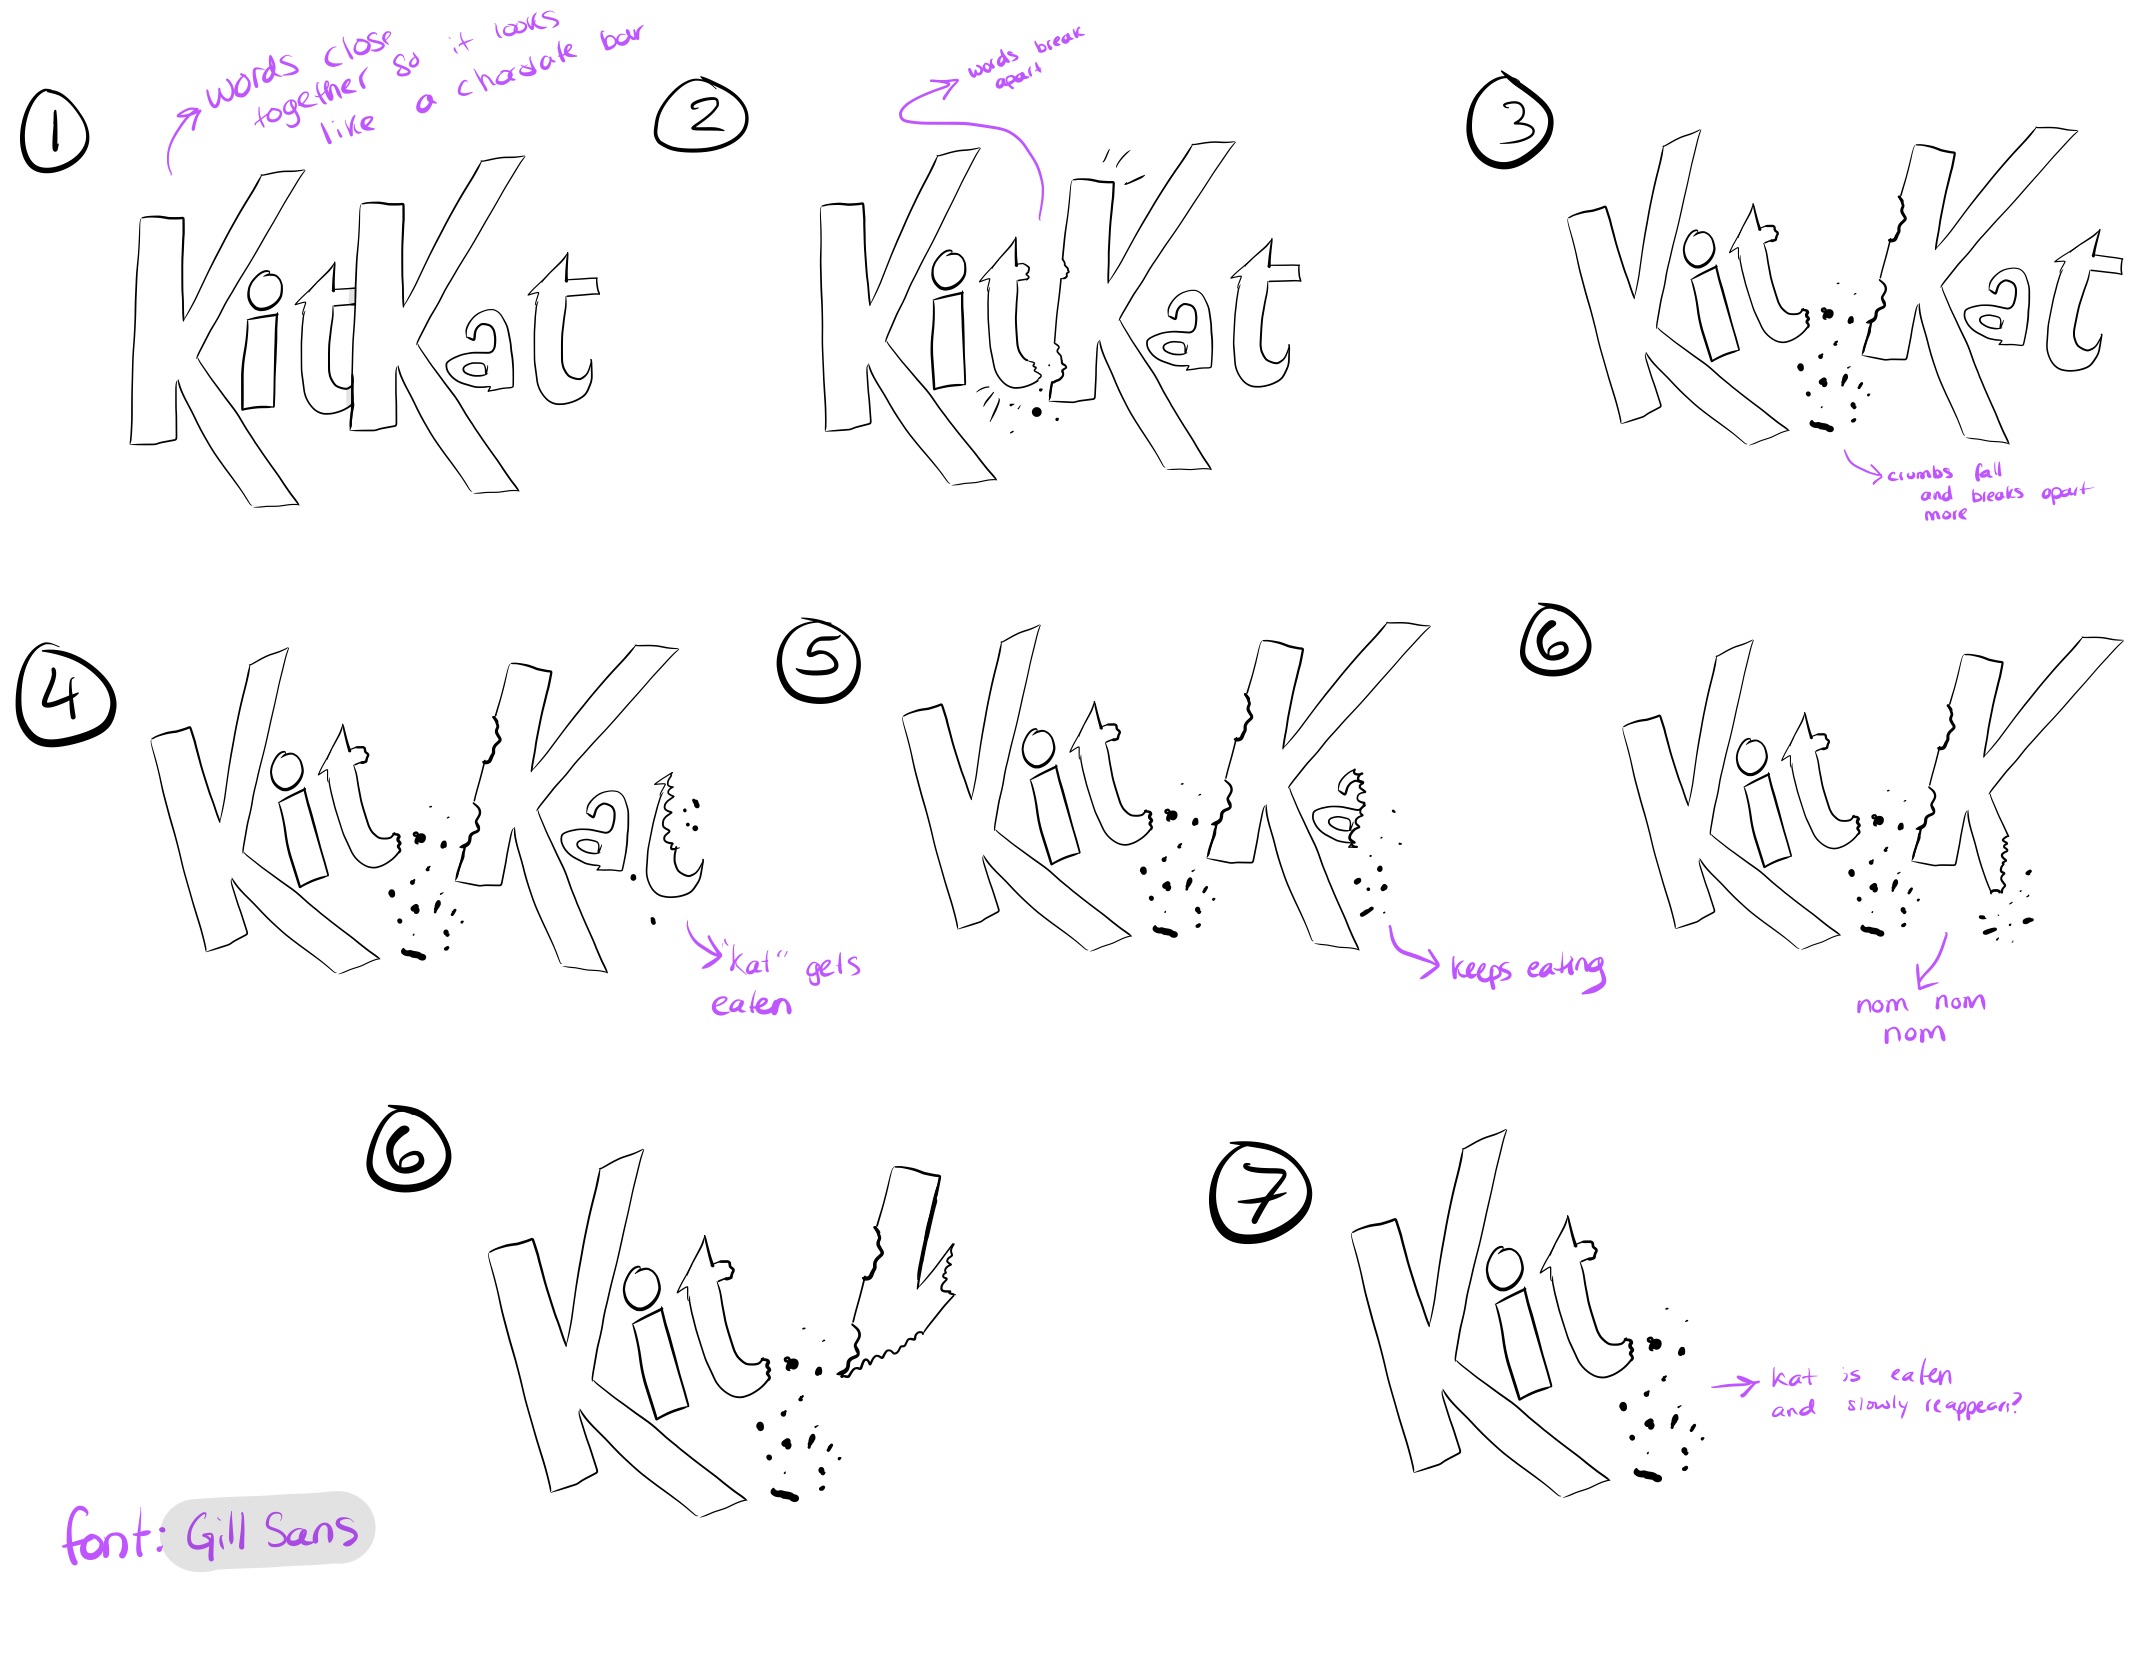 1
words close
together so it looks
like a chocolate bar
KitKat
2
words break
apart
KitKat
3
Kit Kat
crumbs fall
and breaks apart
more
4
Kit Kat
"kat" gets
eaten
5
Kit Ka
keeps eating
6
Kit K
nom nom
nom
6
Kit
7
Kit
kat is eaten
and slowly reappears?
font: Gill Sans